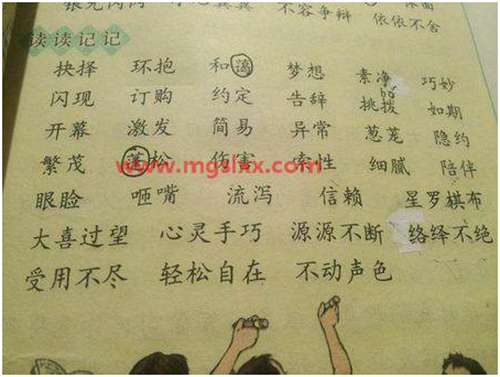 不容争辩 依依不舍
读读记记
抉择 环抱 和谐 梦想 素净 巧妙
闪现 订购 约定 告辞 挑拨 如期
开幕 激发 简易 异常 葱茏 隐约
繁茂 蓬松 伤害 索性 细腻 陪伴
眼脸 咂嘴 流泻 信赖 星罗棋布
大喜过望 心灵手巧 源源不断 络绎不绝
受用不尽 轻松自在 不动声色